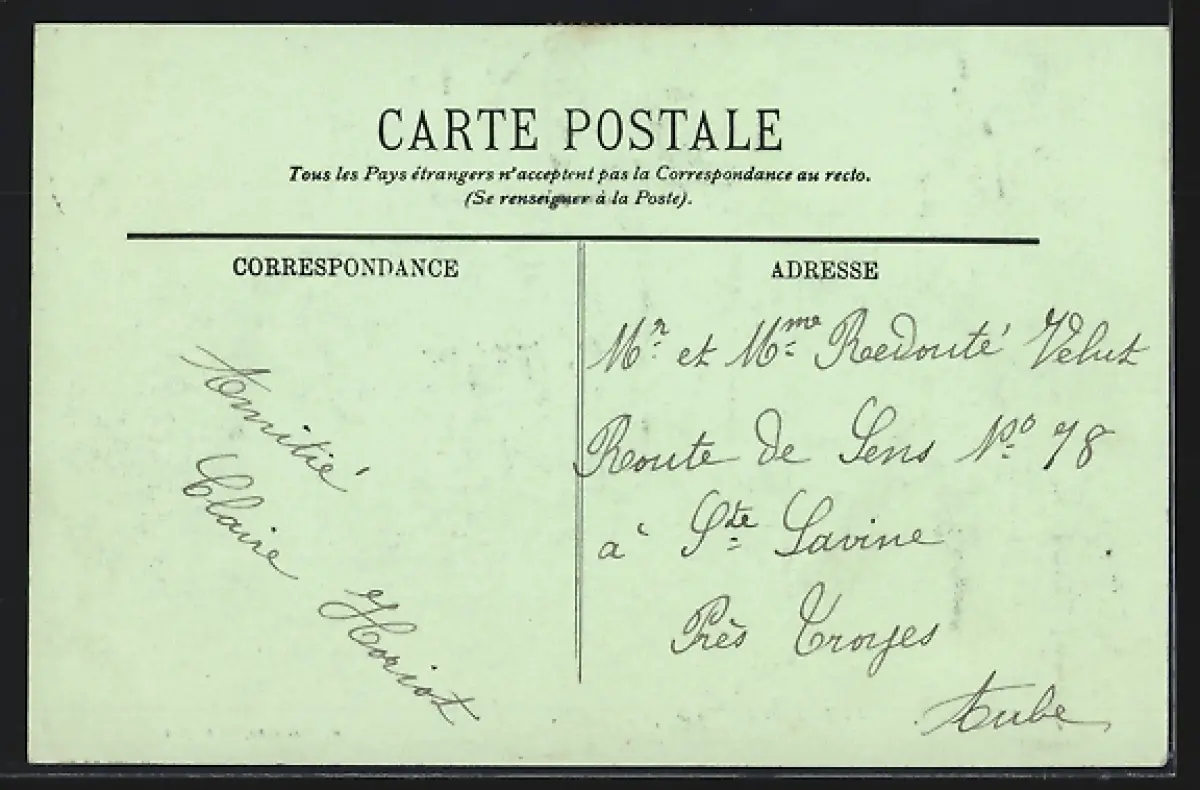 CARTE POSTALE
Tous les Pays étrangers n'acceptent pas la Correspondance au recto.
(Se renseigner à la Poste).
CORRESPONDANCE
Amitié
Claire Horiot
ADRESSE
Mr et Mme Redouté Velut
Route de Sens No 78
à Ste Savine
Près Troyes
Aube